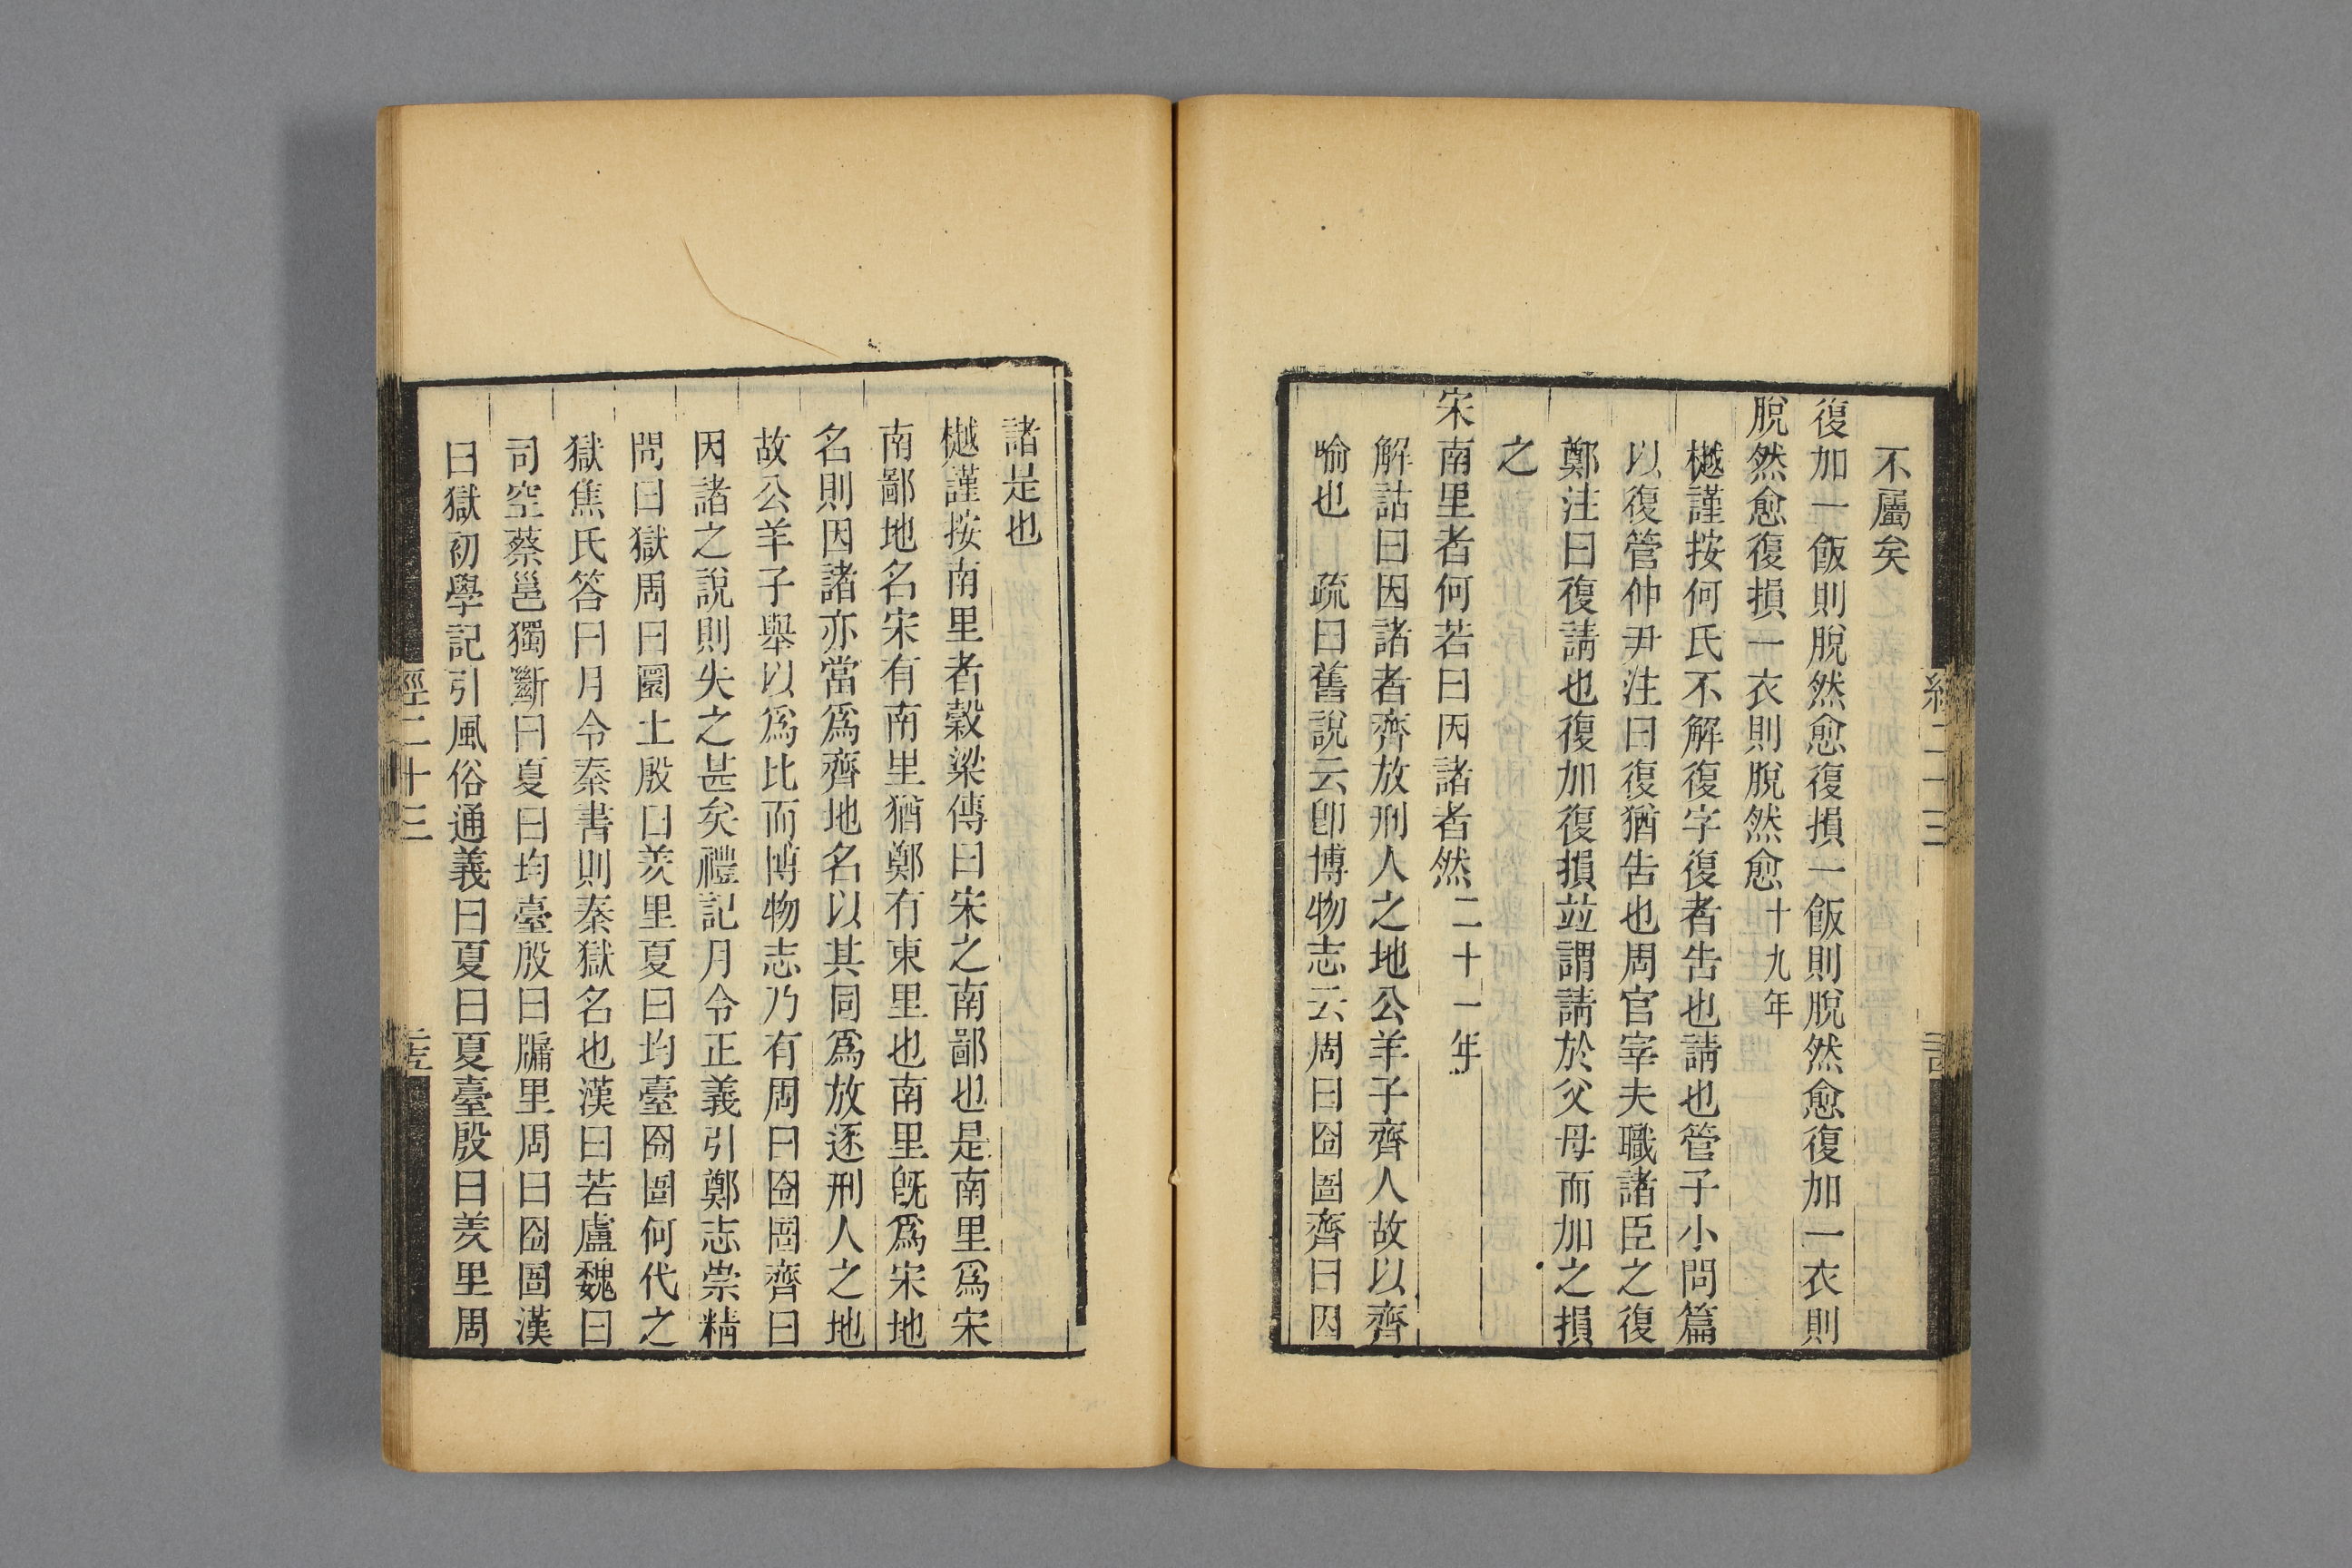 不屬矣
復加一飯則脫然愈復損一飯則脫然愈復加一衣則
脫然愈復損一衣則脫然愈十九年
樾謹按何氏不解復字復者告也請也管子小問篇
以復管仲尹注曰復猶告也周官宰夫職諸臣之復
鄭注曰復請也復加復損竝謂請於父母而加之損
之
宋南里者何若曰因諸者然二十一年
解詁曰因諸者齊放刑人之地公羊子齊人故以齊
喻也　疏曰舊說云卽博物志云周曰囹圄齊曰因
諸是也
樾謹按南里者穀梁傳曰宋之南鄙也是南里爲宋
南鄙地名宋有南里猶鄭有東里也南里旣爲宋地
名則因諸亦當爲齊地名以其同爲放逐刑人之地
故公羊子舉以爲比而博物志乃有周曰囹圄齊曰
因諸之說則失之甚矣禮記月令正義引鄭志崇精
問曰獄周曰圜土殷曰羑里夏曰均臺囹圄何代之
獄焦氏答曰月令秦書則秦獄名也漢曰若盧魏曰
司空蔡邕獨斷曰夏曰均臺殷曰牖里周曰囹圄漢
曰獄初學記引風俗通義曰夏曰夏臺殷曰羑里周
經二十三